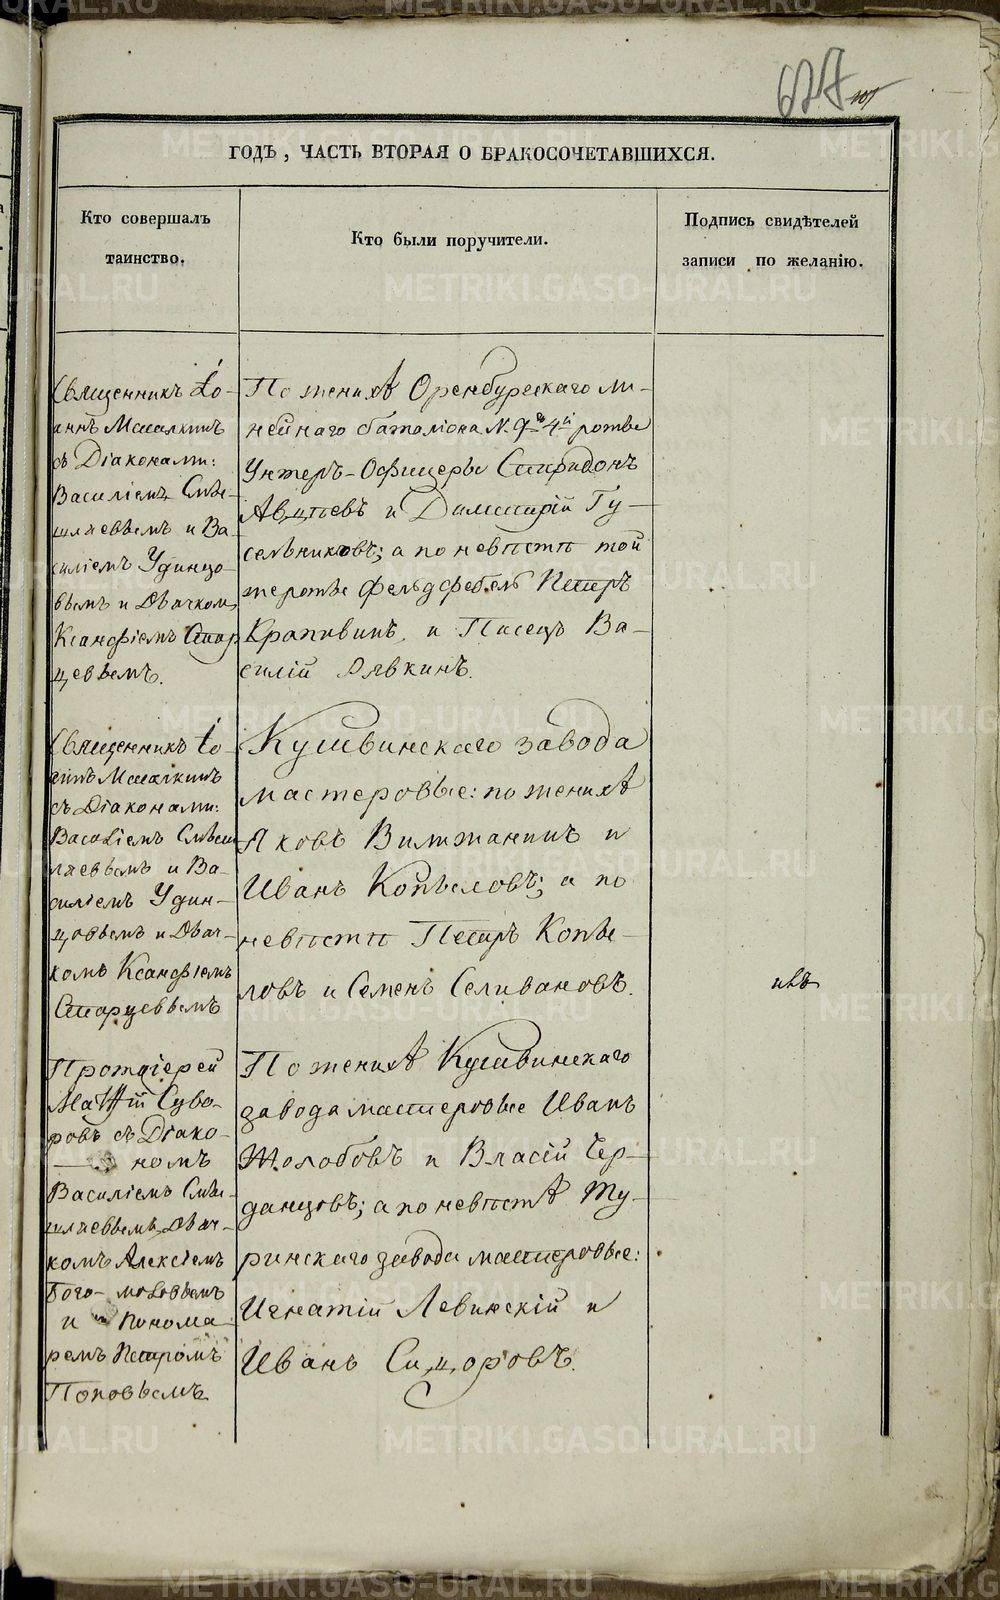 627
101
ГОДЪ, ЧАСТЬ ВТОРАЯ О БРАКОСОЧЕТАВШИХСЯ.
Кто совершалъ
таинство.
Кто были поручители.
Подпись свидѣтелей
записи по желанію.
Священникъ Іо-
аннъ Маалкинъ
съ Діаконами:
Василіемъ Смы-
шляевымъ и Ва-
силіемъ Удинцо-
вымъ и Дьячкомъ
Ксанфіемъ Стар
цевымъ.
По женихѣ Оренбургскаго ли-
нейнаго баталіона N. 9го 4й роты
Унтеръ-Офицеры Спиридонъ
Авдѣевъ и Димитрій Гу-
сельниковъ; а по невѣстѣ той
же роты фельдфебель Петръ
Крапивинъ, и Писецъ Ва-
силій Лявкинъ.
Священникъ Іо-
аннъ Маалкинъ
съ Діаконами:
Василіемъ Смыш
ляевымъ и Ва-
силіемъ Удин-
цовымъ и Дьяч-
комъ Ксанфіемъ
Старцевымъ
Кушвинскаго завода
мастеровые: по женихѣ
Яковъ Вилижанинъ и
Иванъ Копыловъ; а по
невѣстѣ Петръ Копы-
ловъ и Семенъ Селивановъ.
Протоіерей
Матѳій Суво-
ровъ съ Діако-
номъ
Василіемъ Смы-
шляевымъ, Дьяч-
комъ Алексіемъ
Бого-моловымъ
и Понома
ремъ Петромъ
Поповымъ
По женихѣ Кушвинскаго
завода мастеровые Иванъ
Жолобовъ и Власій Чер-
данцовъ; а по невѣстѣ Ту-
ринскаго завода мастеровые:
Игнатій Левинскій и
Иванъ Сидоровъ.
METRIKI.GASO-URAL.RU